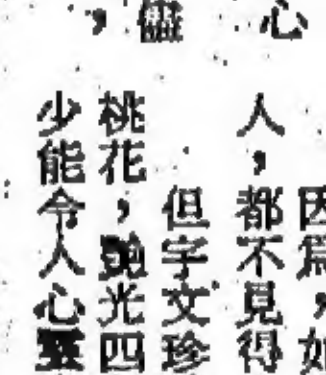 心
儘
，
因爲，如
人，都不見得
但宇文珍
桃花，艷光四
少能令人心